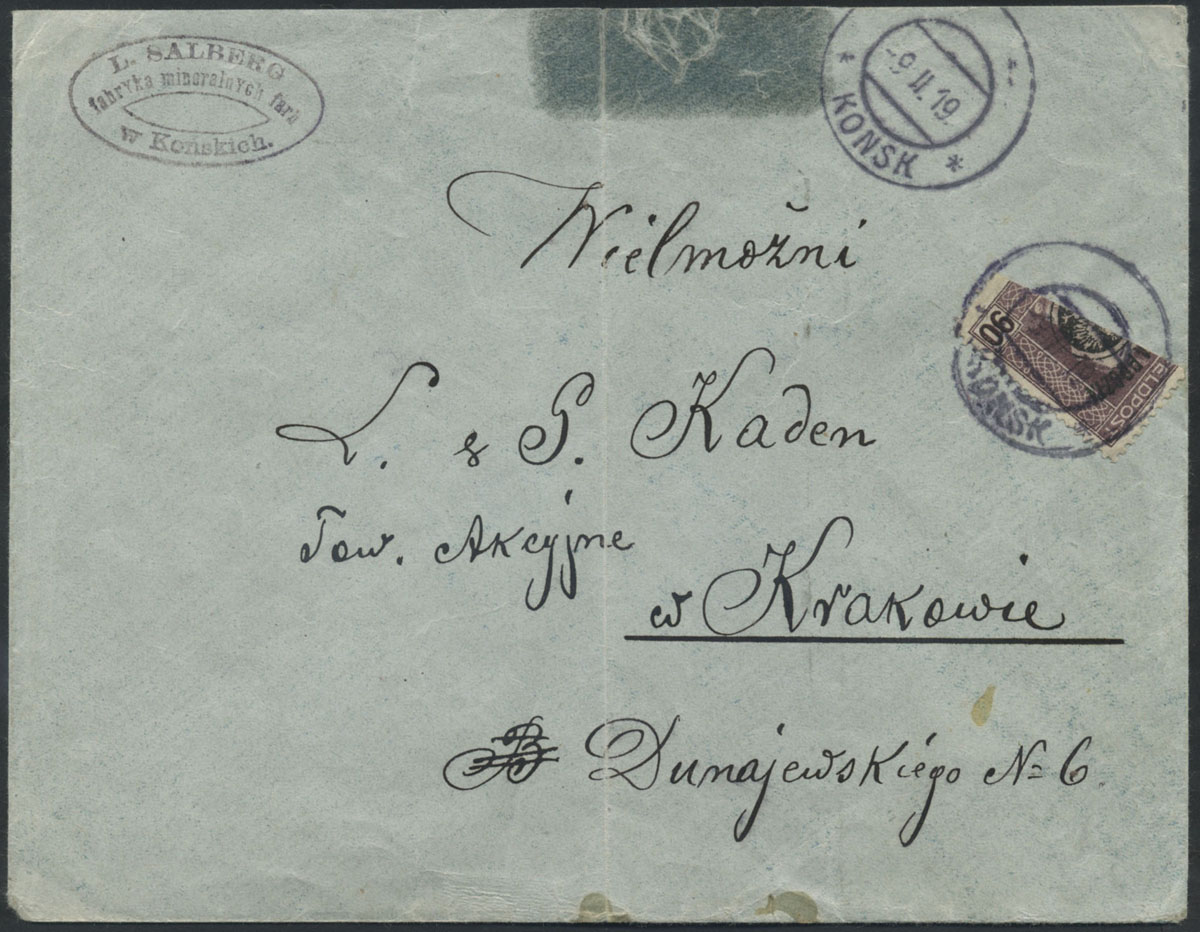 L. SALBERG
fabryka mineralnych farb
w Końskich.
-9.II.19.
* KONSK *
Wielmożni
90
FELDPOST
KONSK
L. & G. Kaden
Tow. Akcyjne
w Krakowie
Dunajewskiego № 6.